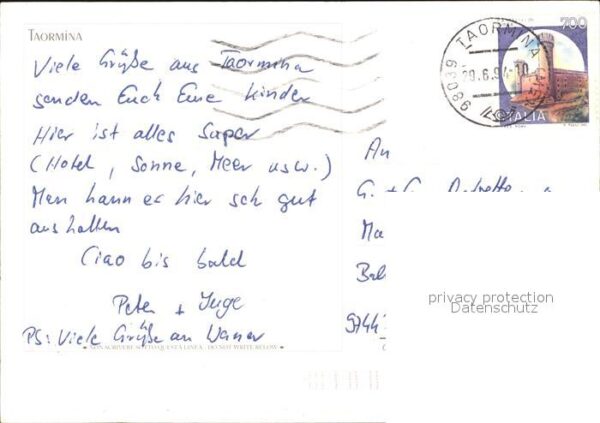 TAORMINA
Viele Grüße aus Taormina
senden Euch Eure Kinder
Hier ist alles Super
(Hotel, Sonne, Meer usw.)
Man kann es hier sehr gut
aushalten
Ciao bis bald
Peter + Inge
PS: Viele Grüße an Werner
NON SCRIVERE SOTTO QUESTA LINEA - DO NOT WRITE BELOW
700
ITALIA
98039 TAORMINA
29.6.94-10
An
G. + G.
Ma
privacy protection
Datenschutz